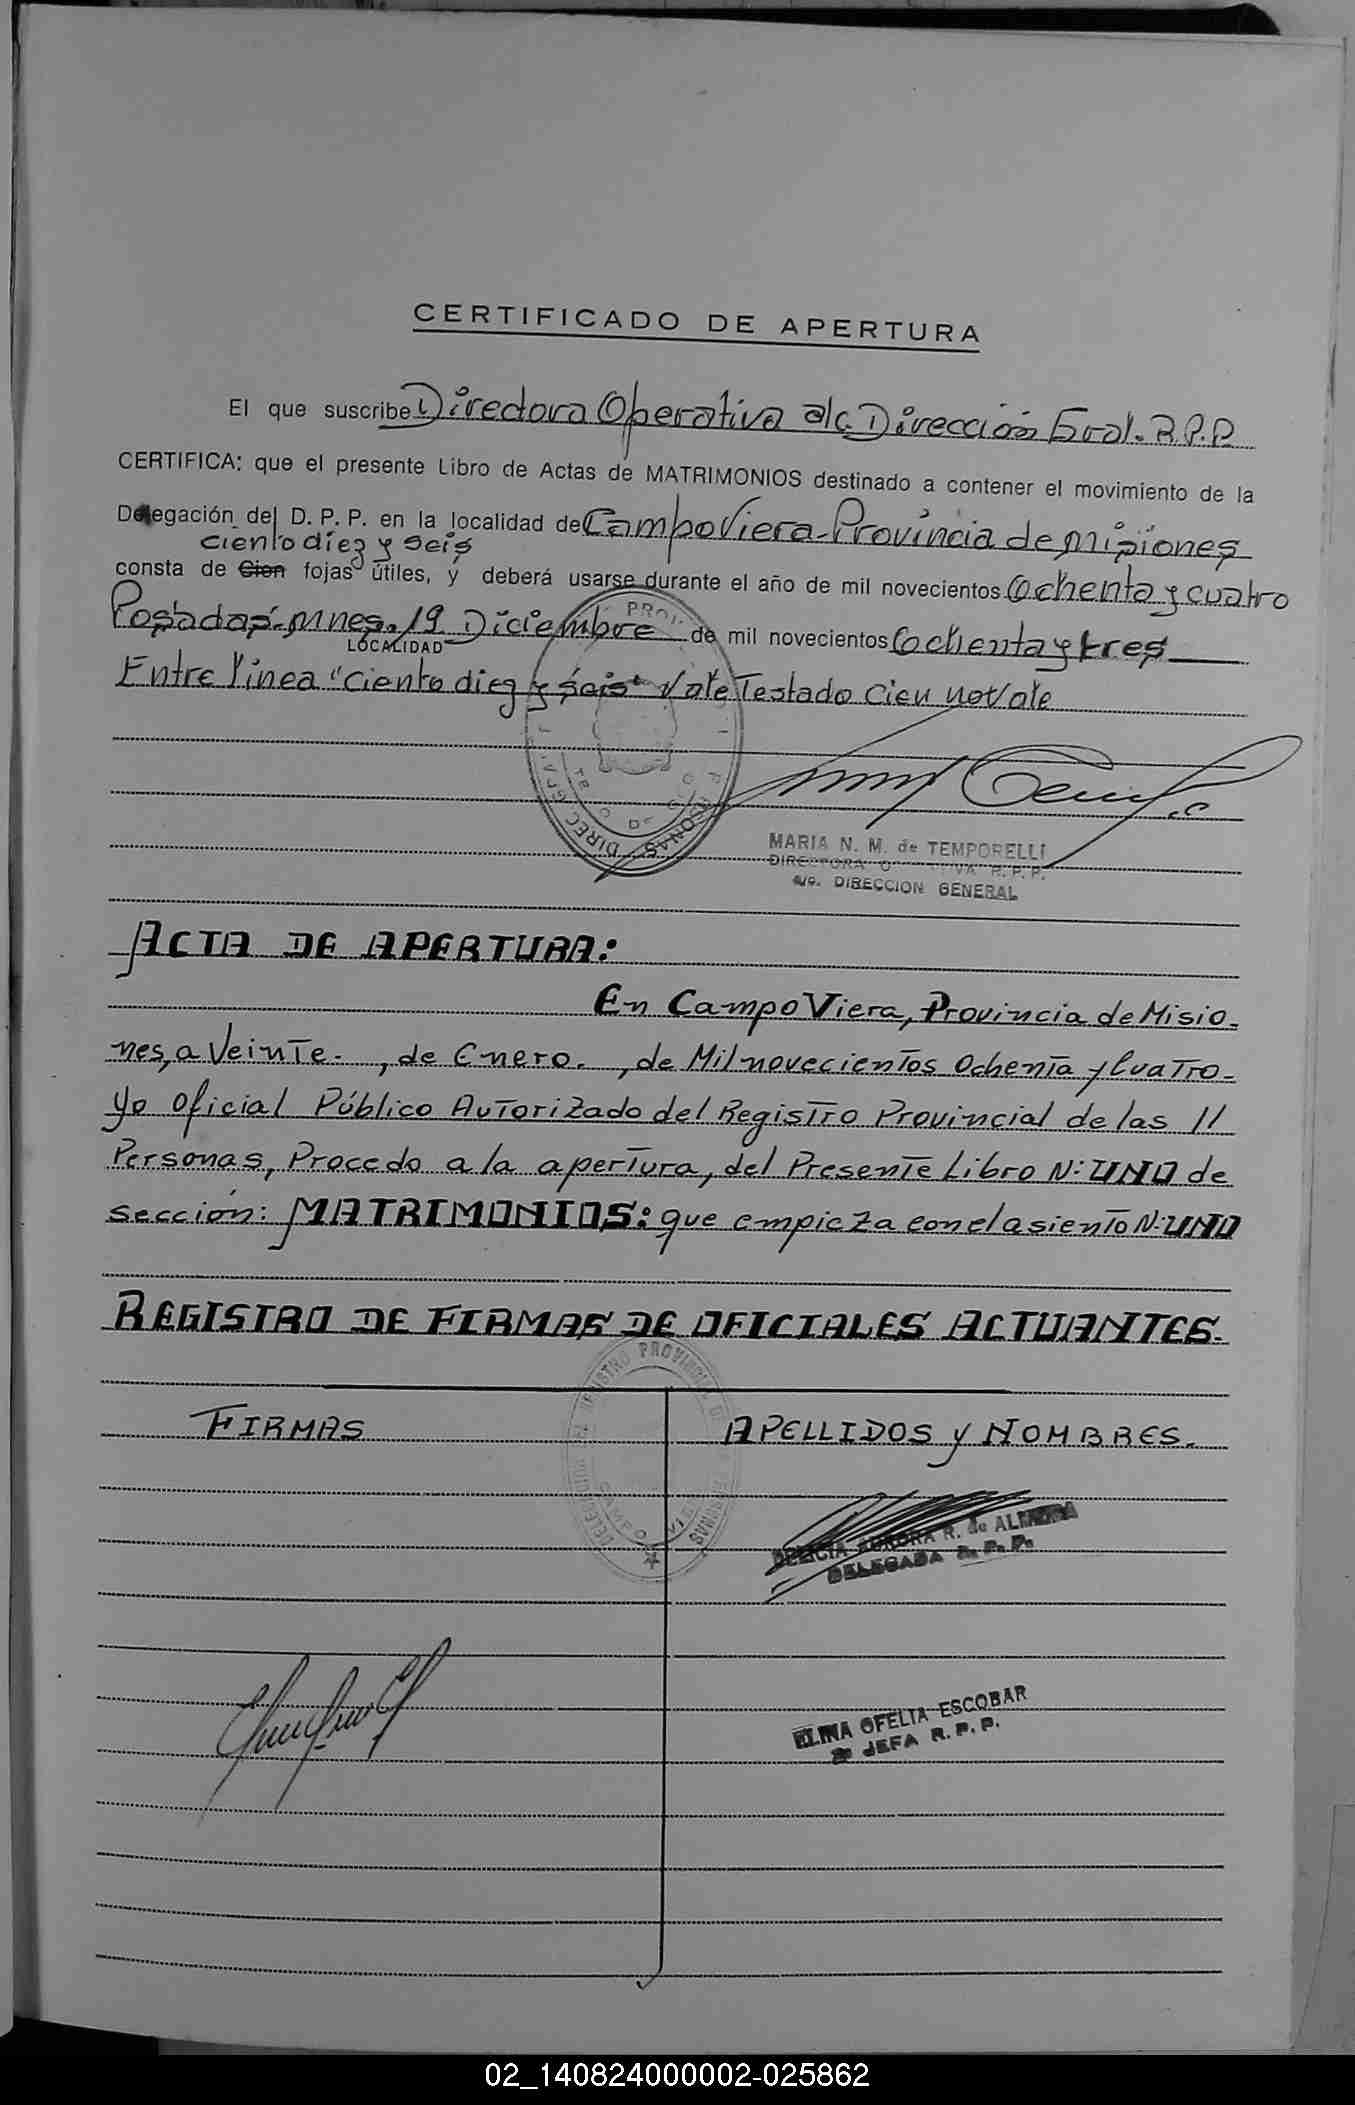 CERTIFICADO DE APERTURA
El que suscribe Directora Operativa a/c. Dirección Gral. R.P.P.
CERTIFICA: que el presente Libro de Actas de MATRIMONIOS destinado a contener el movimiento de la
Delegación del D. P. P. en la localidad de Campo Viera - Provincia de Misiones
ciento diez y seis
consta de Cien fojas útiles, y deberá usarse durante el año de mil novecientos Ochenta y cuatro
Posadas. Mnes. 19 Diciembre de mil novecientos Ochenta y tres
LOCALIDAD
Entre línea "ciento diez y seis" Vale Testado Cien no Vale
MARIA N. M. de TEMPORELLI
DIRECTORA R. P. P.
a/c. DIRECCION GENERAL
ACTA DE APERTURA:
En Campo Viera, Provincia de Misio-
nes, a Veinte.-, de Enero. , de Mil novecientos Ochenta y Cuatro-
Yo Oficial Público Autorizado del Registro Provincial de las //
Personas, Procedo a la apertura, del Presente Libro N: UNO de
sección: MATRIMONIOS: que empieza con el asiento N: UNO
REGISTRO DE FIRMAS DE OFICIALES ACTUANTES.
FIRMAS APELLIDOS y NOMBRES.
DELICIA AURORA R. de
DELEGADA R. P. P.
ELINA OFELIA ESCOBAR
JEFA R. P. P.
02_140824000002-025862